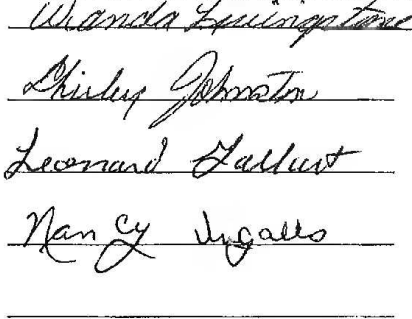 Wanda Livingstone
Shirley Johnston
Leonard
Nancy Ingalls